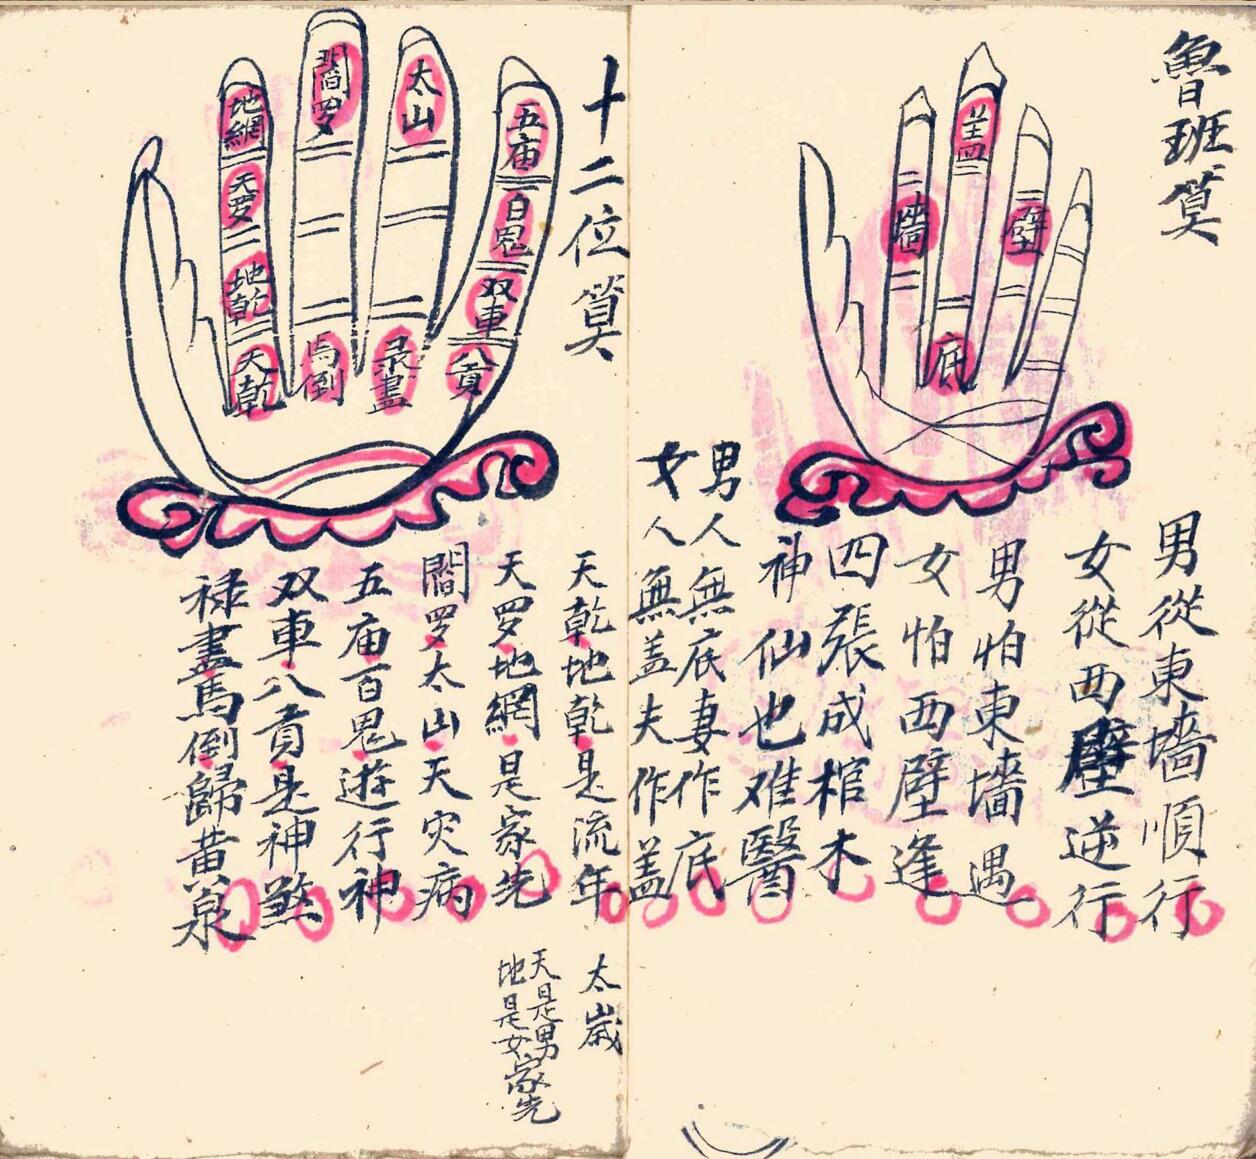 魯班算
蓋
墙
壁
底
男從東墻順行
女從西壁逆行
男怕東墻遇
女怕西壁逢
四張成棺木
神仙也难醫
男人無底妻作底
女人無盖夫作盖
十二位算
五庙
百鬼
双車
八貢
太山
录盡
閻罗
馬倒
地網
天罗
地乾
天乾
天乾地乾是流年
太歲
天罗地網是家先
天是男
地是女家先
閻罗太山天灾病
五庙百鬼遊行神
双車八貢是神煞
禄盡馬倒歸黄泉